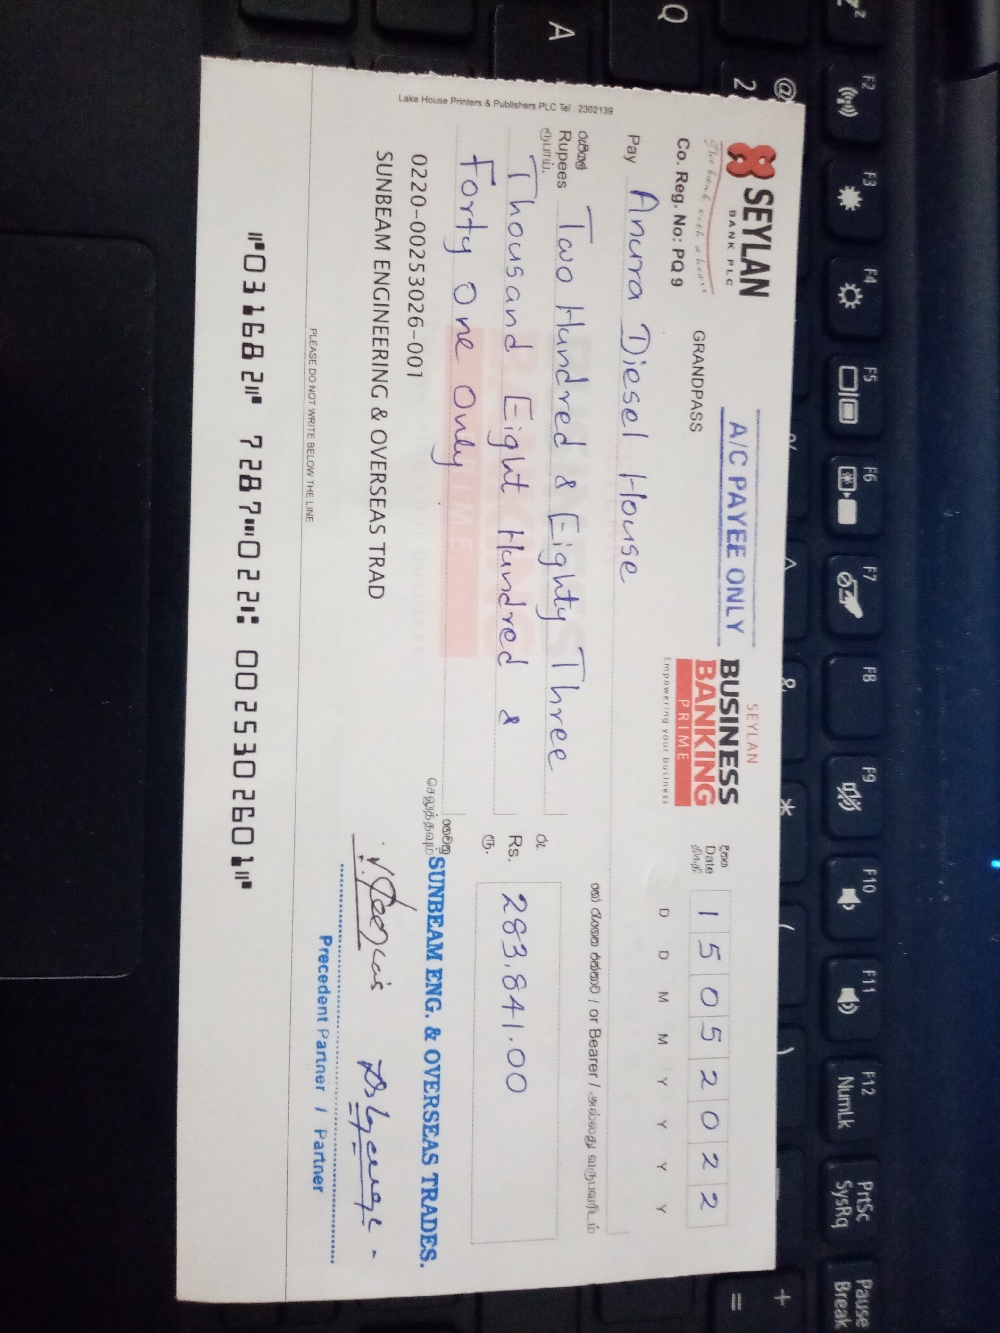 SEYLAN
BANK PLC
The bank with a heart
Co. Reg. No: PQ 9
GRANDPASS
A/C PAYEE ONLY
SEYLAN
BUSINESS
BANKING
PRIME
Empowering your business
දිනය
Date
திகதி
1 5 0 5 2 0 2 2
D D M M Y Y Y Y
Pay Anura Diesel House
හෝ රැගෙන එන්නාට / or Bearer / அல்லது வருபவரிடம்
රුපියල්
Rupees
ரூபாய்
Two Hundred & Eighty Three
Thousand Eight Hundred &
Forty One Only
රු.
Rs.
ரூ.
283,841.00
0220-00253026-001
SUNBEAM ENGINEERING & OVERSEAS TRAD
ගෙවනු
செலுத்தவும்
SUNBEAM ENG. & OVERSEAS TRADES.
Precedent Partner / Partner
PLEASE DO NOT WRITE BELOW THE LINE
⑈031682⑈ 7287⑉022⑆ 0025302601⑈
Lake House Printers & Publishers PLC Tel : 2302139
Q
A
@
2
F2
F3
F4
F5
F6
F7
F8
F9
F10
F11
F12
NumLk
PrtSc
SysRq
Pause
Break
&
*
(
)
+
=